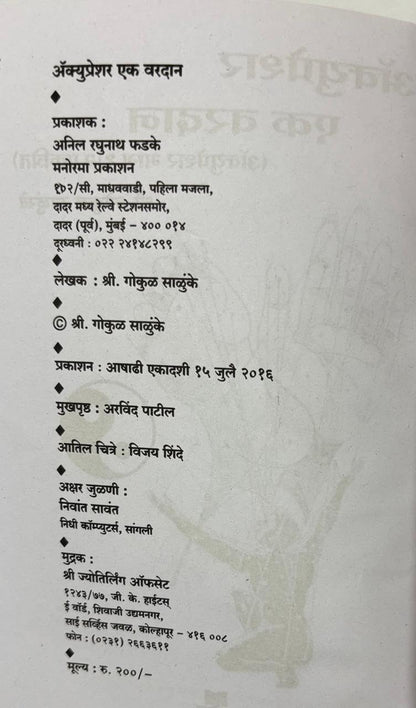 ॲक्युप्रेशर एक वरदान
◆
प्रकाशक :
अनिल रघुनाथ फडके
मनोरमा प्रकाशन
१७२/सी, माधववाडी, पहिला मजला,
दादर मध्य रेल्वे स्टेशनसमोर,
दादर (पूर्व), मुंबई – ४०० ०१४
दूरध्वनी : ०२२ २४१४८२९९
◆
लेखक : श्री. गोकुळ साळुंके
◆
© श्री. गोकुळ साळुंके
◆
प्रकाशन : आषाढी एकादशी १५ जुलै २०१६
◆
मुखपृष्ठ : अरविंद पाटील
◆
आतिल चित्रे : विजय शिंदे
◆
अक्षर जुळणी :
निवांत सावंत
निधी कॉम्प्युटर्स, सांगली
◆
मुद्रक :
श्री ज्योतिर्लिंग ऑफसेट
१२४३/७७, जी. के. हाईटस्
ई वॉर्ड, शिवाजी उद्यमनगर,
साई सर्व्हिस जवळ, कोल्हापूर – ४१६ ००८
फोन : (०२३१) २६६३६११
◆
मूल्य : रु. २००/–